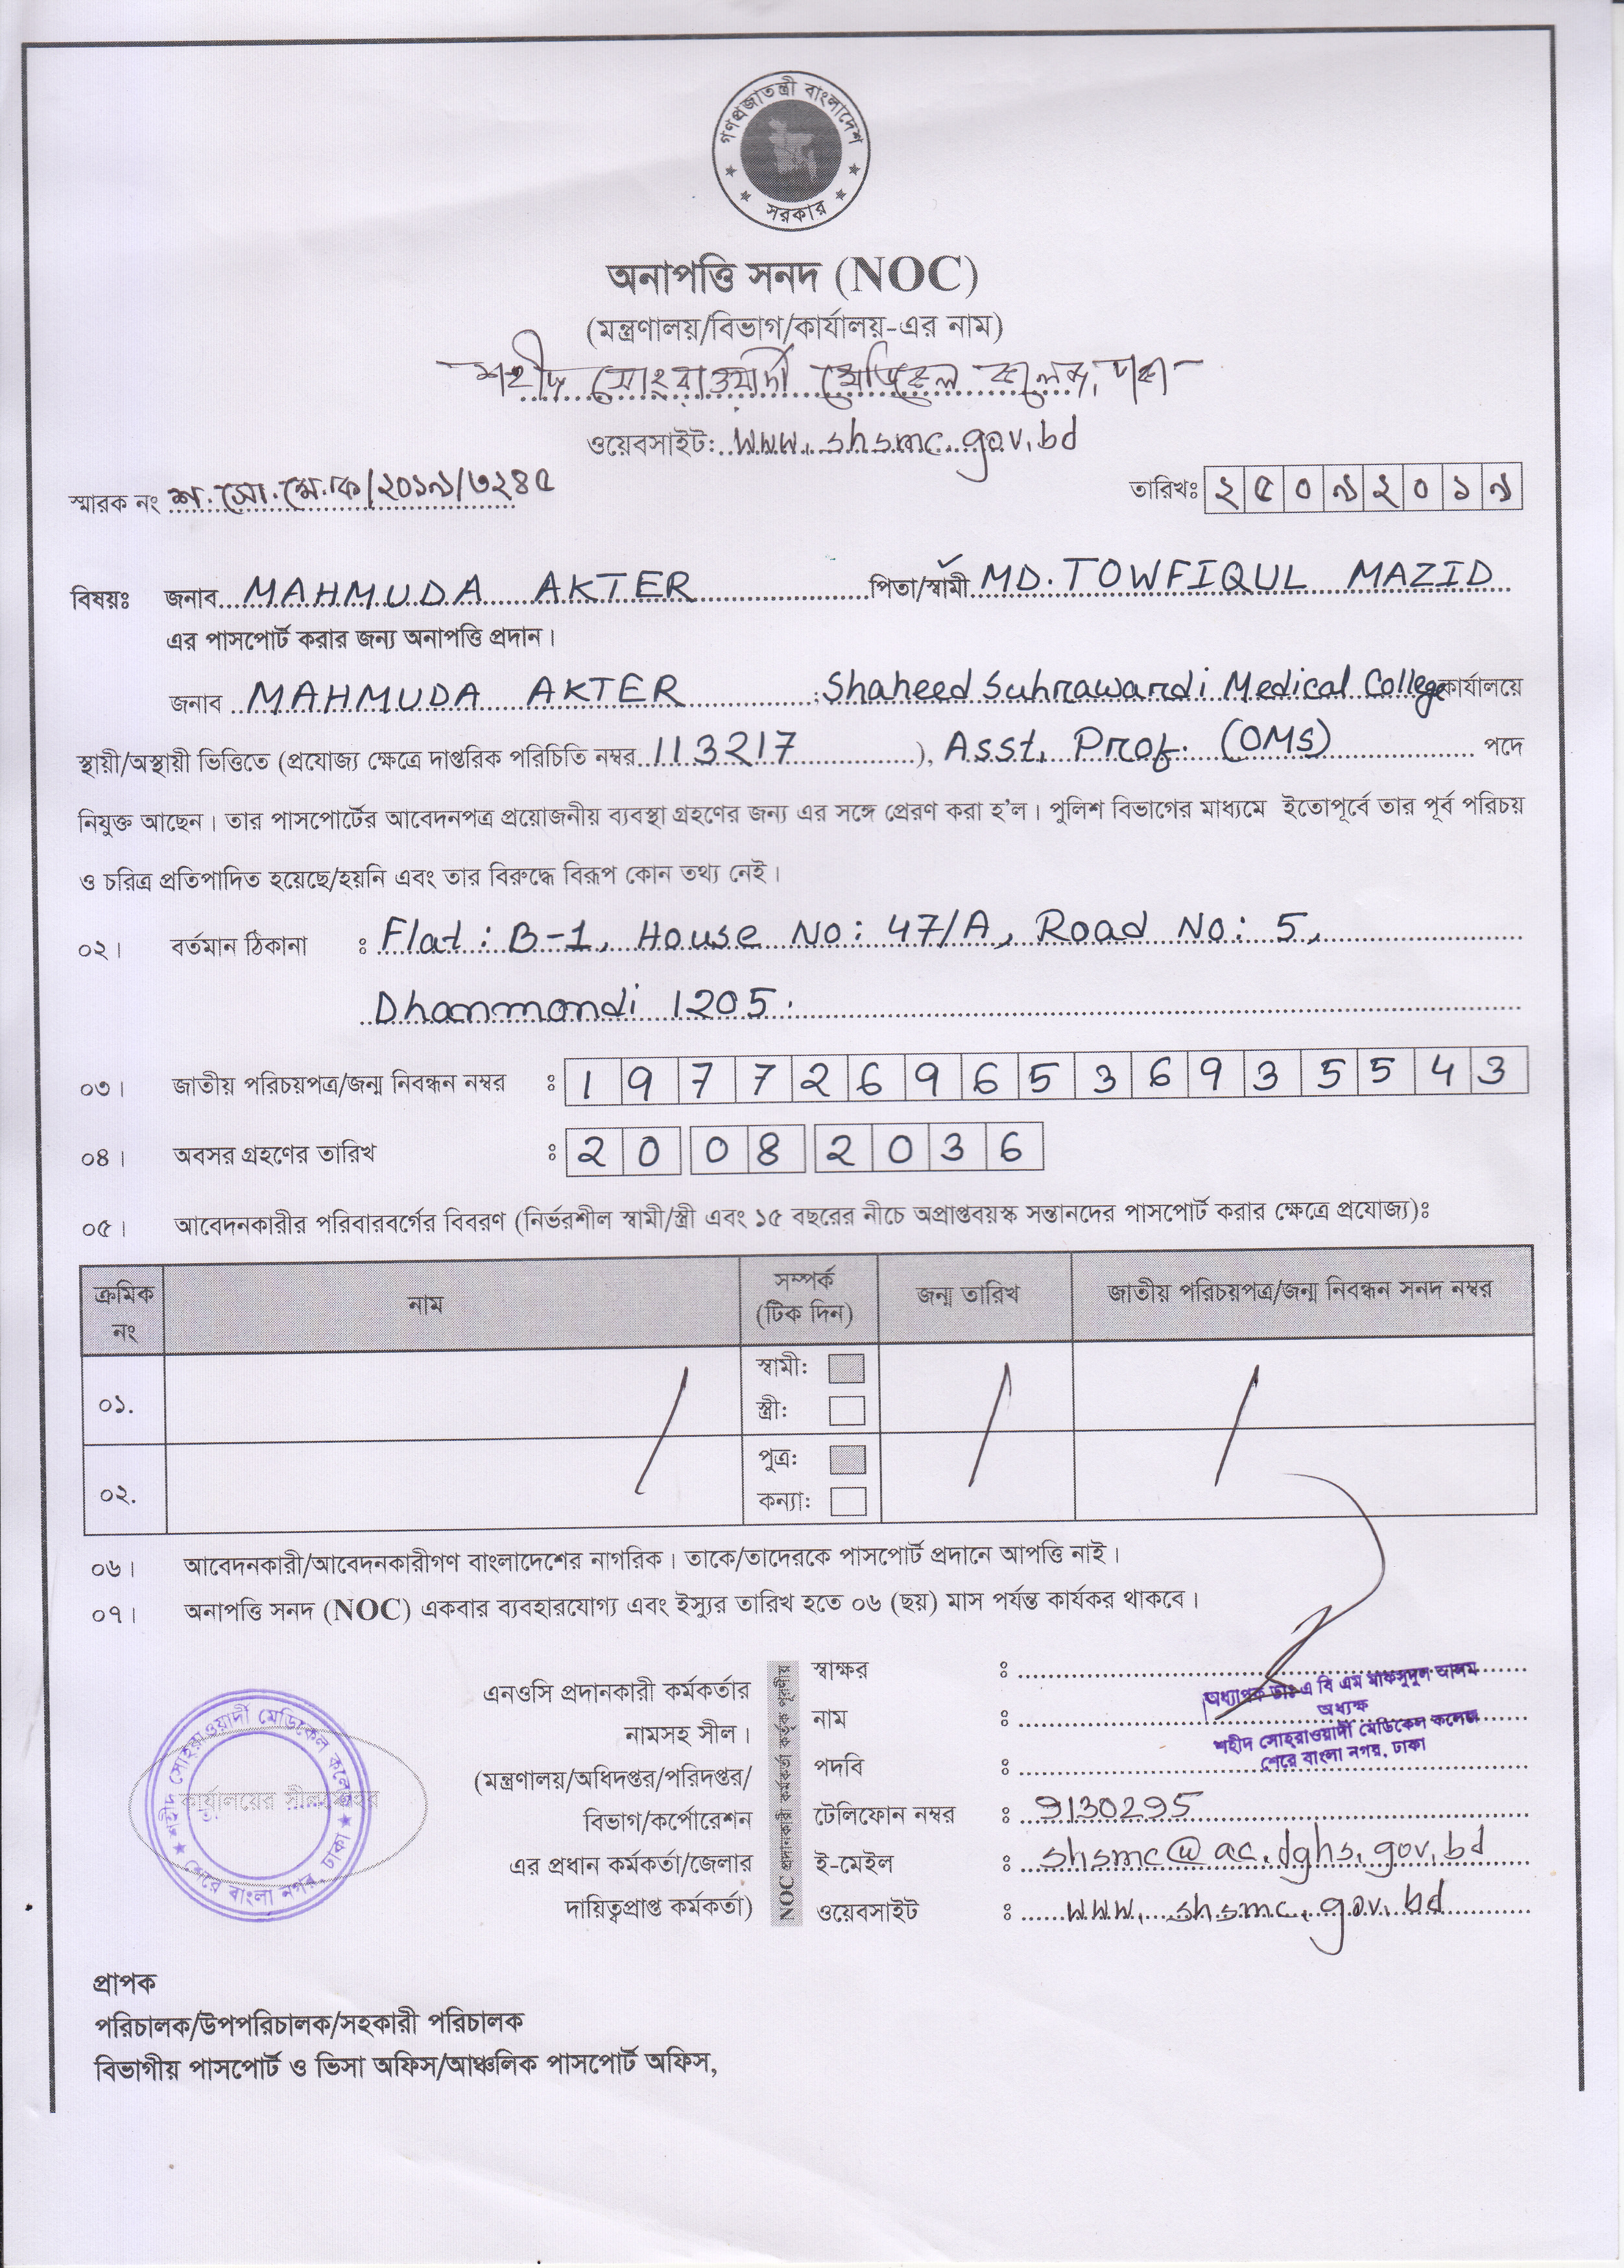 গণপ্রজাতন্ত্রী বাংলাদেশ
সরকার
অনাপত্তি সনদ (NOC)
(মন্ত্রণালয়/বিভাগ/কার্যালয়-এর নাম)
শহীদ সোহরাওয়ার্দী মেডিকেল কলেজ, ঢাকা
ওয়েবসাইট: www.shsmc.gov.bd
স্মারক নং শ.সো.মে.ক/২০১৯/৩২৪৫
তারিখঃ ২৫০৯২০১৯
বিষয়ঃ জনাব MAHMUDA AKTER পিতা/স্বামী MD. TOWFIQUL MAZID
এর পাসপোর্ট করার জন্য অনাপত্তি প্রদান।
জনাব MAHMUDA AKTER ; Shaheed Suhrawardi Medical College কার্যালয়ে
স্থায়ী/অস্থায়ী ভিত্তিতে (প্রযোজ্য ক্ষেত্রে দাপ্তরিক পরিচিতি নম্বর 113217 ), Asst. Prof. (OMS) পদে
নিযুক্ত আছেন। তার পাসপোর্টের আবেদনপত্র প্রয়োজনীয় ব্যবস্থা গ্রহণের জন্য এর সঙ্গে প্রেরণ করা হ'ল। পুলিশ বিভাগের মাধ্যমে ইতোপূর্বে তার পূর্ব পরিচয়
ও চরিত্র প্রতিপাদিত হয়েছে/হয়নি এবং তার বিরুদ্ধে বিরূপ কোন তথ্য নেই।
০২। বর্তমান ঠিকানা : Flat: B-1, House No: 47/A, Road No: 5,
Dhanmondi 1205.
০৩। জাতীয় পরিচয়পত্র/জন্ম নিবন্ধন নম্বর : 19772696536935543
০৪। অবসর গ্রহণের তারিখ : 20 08 2036
০৫। আবেদনকারীর পরিবারবর্গের বিবরণ (নির্ভরশীল স্বামী/স্ত্রী এবং ১৫ বছরের নীচে অপ্রাপ্তবয়স্ক সন্তানদের পাসপোর্ট করার ক্ষেত্রে প্রযোজ্য)ঃ
ক্রমিক নং নাম সম্পর্ক (টিক দিন) জন্ম তারিখ জাতীয় পরিচয়পত্র/জন্ম নিবন্ধন সনদ নম্বর
০১. স্বামী:
স্ত্রী:
০২. পুত্র:
কন্যা:
০৬। আবেদনকারী/আবেদনকারীগণ বাংলাদেশের নাগরিক। তাকে/তাদেরকে পাসপোর্ট প্রদানে আপত্তি নাই।
০৭। অনাপত্তি সনদ (NOC) একবার ব্যবহারযোগ্য এবং ইস্যুর তারিখ হতে ০৬ (ছয়) মাস পর্যন্ত কার্যকর থাকবে।
শহীদ সোহরাওয়ার্দী মেডিকেল কলেজ
শেরে বাংলা নগর, ঢাকা
কার্যালয়ের সীলমোহর
এনওসি প্রদানকারী কর্মকর্তার
নামসহ সীল।
(মন্ত্রণালয়/অধিদপ্তর/পরিদপ্তর/
বিভাগ/কর্পোরেশন
এর প্রধান কর্মকর্তা/জেলার
দায়িত্বপ্রাপ্ত কর্মকর্তা)
NOC প্রদানকারী কর্মকর্তা কর্তৃক পূরণীয়
স্বাক্ষর :
নাম :
পদবি :
অধ্যাপক ডাঃ এ বি এম মাকসুদুল আলম
অধ্যক্ষ
শহীদ সোহরাওয়ার্দী মেডিকেল কলেজ
শেরে বাংলা নগর, ঢাকা
টেলিফোন নম্বর : 9130295
ই-মেইল : shsmc@ac.dghs.gov.bd
ওয়েবসাইট : www.shsmc.gov.bd
প্রাপক
পরিচালক/উপপরিচালক/সহকারী পরিচালক
বিভাগীয় পাসপোর্ট ও ভিসা অফিস/আঞ্চলিক পাসপোর্ট অফিস,